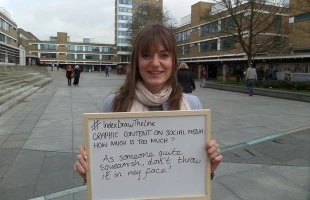 # IndexDrawTheLine
GRAPHIC CONTENT ON SOCIAL MEDIA,
HOW MUCH IS TOO MUCH?
As someone quite
squeamish, don't throw
it in my face!